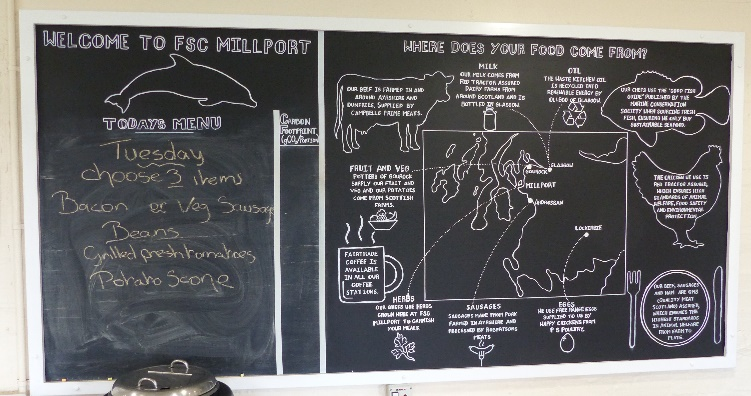 WELCOME TO FSC MILLPORT
TODAYS MENU
CARBON
FOOTPRINT
(gCO₂/PORTION)
Tuesday
choose 3 items
Bacon or Veg Sausage
Beans
Grilled fresh tomatoes
Potato Scone
WHERE DOES YOUR FOOD COME FROM?
OUR BEEF IS FARMED IN AND
AROUND AYRSHIRE AND
DUMFRIES, SUPPLIED BY
CAMPBELLS PRIME MEATS.
MILK
OUR MILK COMES FROM
RED TRACTOR ASSURED
DAIRY FARMS FROM
AROUND SCOTLAND AND IS
BOTTLED IN GLASGOW.
OIL
THE WASTE KITCHEN OIL
IS RECYCLED INTO
RENEWABLE ENERGY BY
OF GLASGOW.
OUR CHEFS USE THE "GOOD FISH
GUIDE" PUBLISHED BY THE
MARINE CONSERVATION
SOCIETY WHEN SOURCING FRESH
FISH, ENSURING WE ONLY BUY
SUSTAINABLE SEAFOOD.
FRUIT AND VEG
POTTERS OF GOUROCK
SUPPLY OUR FRUIT AND
VEG AND OUR POTATOES
COME FROM SCOTTISH
FARMS.
GLASGOW
GOUROCK
MILLPORT
ARDROSSAN
LOCKERBIE
THE CHICKEN WE USE IS
RED TRACTOR ASSURED,
WHICH ENSURES HIGH
STANDARDS OF ANIMAL
WELFARE, FOOD SAFETY
AND ENVIRONMENTAL
PROTECTION.
FAIRTRADE
COFFEE IS
AVAILABLE
IN ALL OUR
COFFEE
STATIONS.
HERBS
OUR CHEFS USE HERBS
GROWN HERE AT FSC
MILLPORT TO GARNISH
YOUR MEALS.
SAUSAGES
SAUSAGES MADE FROM PORK
FARMED IN AYRSHIRE AND
PROCESSED BY
MEATS
EGGS
WE USE FREE RANGE EGGS
SUPPLIED TO US BY
HAPPY CHICKENS FROM
POULTRY.
OUR BEEF, SAUSAGES
AND HAM ARE QMS
(QUALITY MEAT
SCOTLAND) ASSURED,
WHICH ENSURES THE
HIGHEST STANDARDS
IN ANIMAL WELFARE
FROM FARM TO
PLATE.